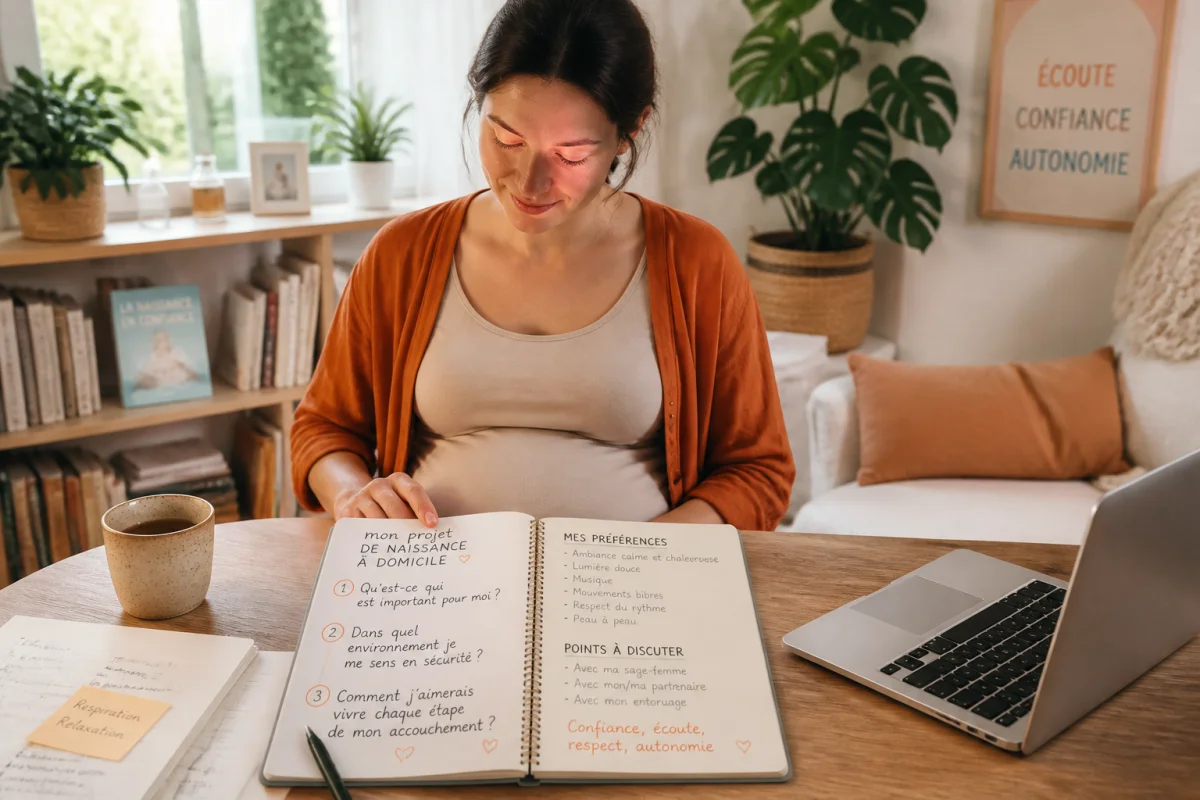 ÉCOUTE
CONFIANCE
AUTONOMIE
LA NAISSANCE
EN CONFIANCE
mon projet
DE NAISSANCE
À DOMICILE
1 Qu'est-ce qui
est important pour moi ?
2 Dans quel
environnement je
me sens en sécurité ?
3 Comment j'aimerais
vivre chaque étape
de mon accouchement ?
MES PRÉFÉRENCES
- Ambiance calme et chaleureuse
- Lumière douce
- Musique
- Mouvements bibres
- Respect du rythme
- Peau à peau
POINTS À DISCUTER
- Avec ma sage-femme
- Avec mon/ma partenaire
- Avec mon entourage
Confiance, écoute,
respect, autonomie
Respiration
Relaxation